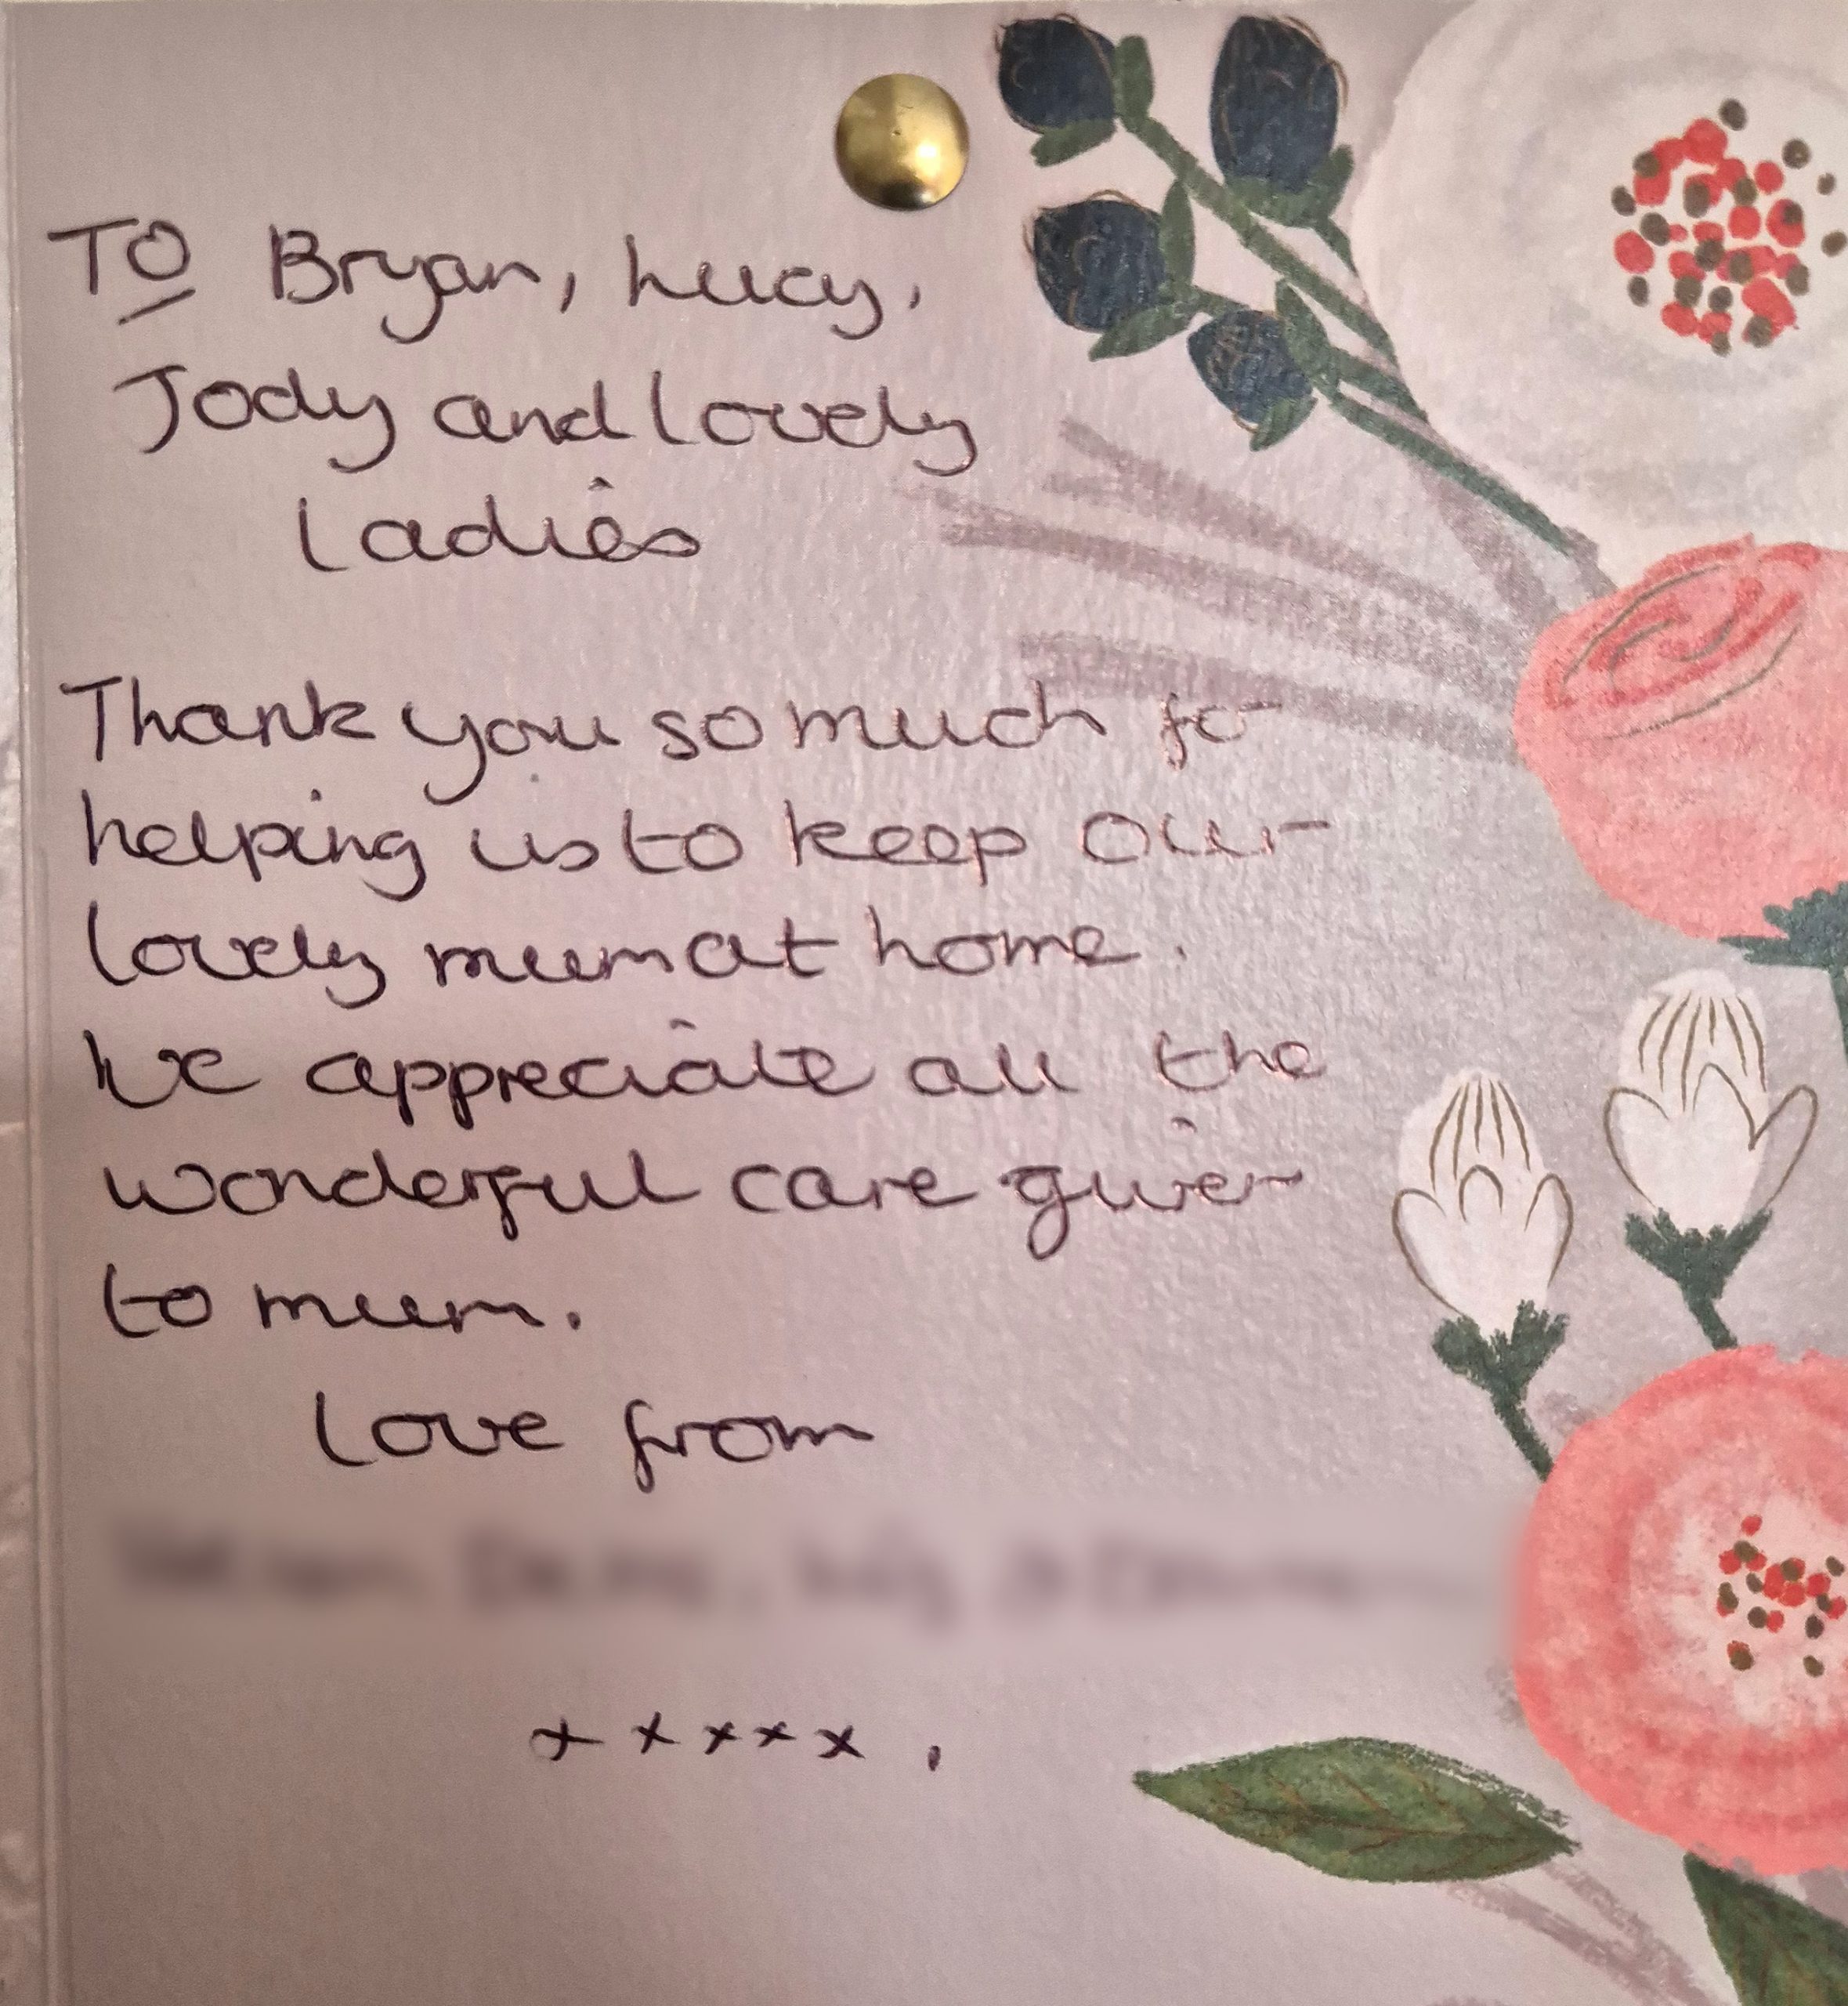 To Bryan, Lucy,
Jody and lovely
ladies
Thank you so much for
helping us to keep our
lovely mum at home.
We appreciate all the
wonderful care given
to mum.
love from
x x x x x .